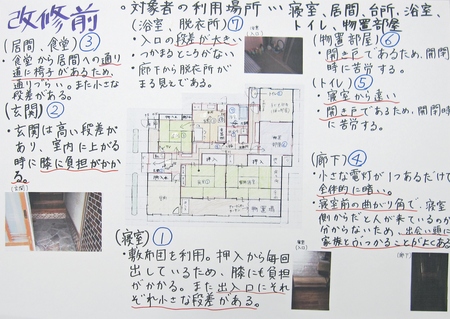 改修前
○対象者の利用場所…寝室、居間、台所、浴室、
トイレ、物置部屋
(居間、食堂)③
・食堂から居間への通り
道に椅子があるため、
通りづらい。また小さな
段差がある。
(玄関)②
・玄関は高い段差が
あり、室内に上がる
時に膝に負担がかか
る。
(玄関)
(浴室、脱衣所)⑦
・入口の段差が大きい
・つかまるところがない
・廊下から脱衣所が
まる見えである。
(物置部屋)⑥
・開き戸であるため、開閉
時に苦労する。
(トイレ)⑤
・寝室から遠い
・開き戸であるため、開閉時
に苦労する。
(廊下)④
・小さな電灯が1つあるだけで
全体的に暗い。
・寝室前の曲がり角で、寝室
側からだと人が来ているのが
分からないため、出会い頭に
家族とぶつかることがよくある
(寝室)①
・敷布団を利用。押入から毎回
出しているため、膝にも負担
がかかる。また出入口にそれ
ぞれ小さな段差がある。
押入
押入
物置場